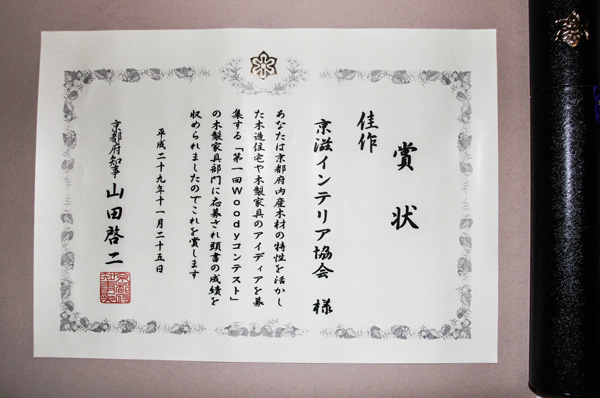 賞状
佳作
京滋インテリア協会 様
あなたは京都府内産木材の特性を活かし
た木造住宅や木製家具のアイディアを募
集する「第一回Woodyコンテスト」
の木製家具部門に応募され頭書の成績を
収められましたのでこれを賞します
平成二十九年十一月二十五日
京都府知事 山田啓二